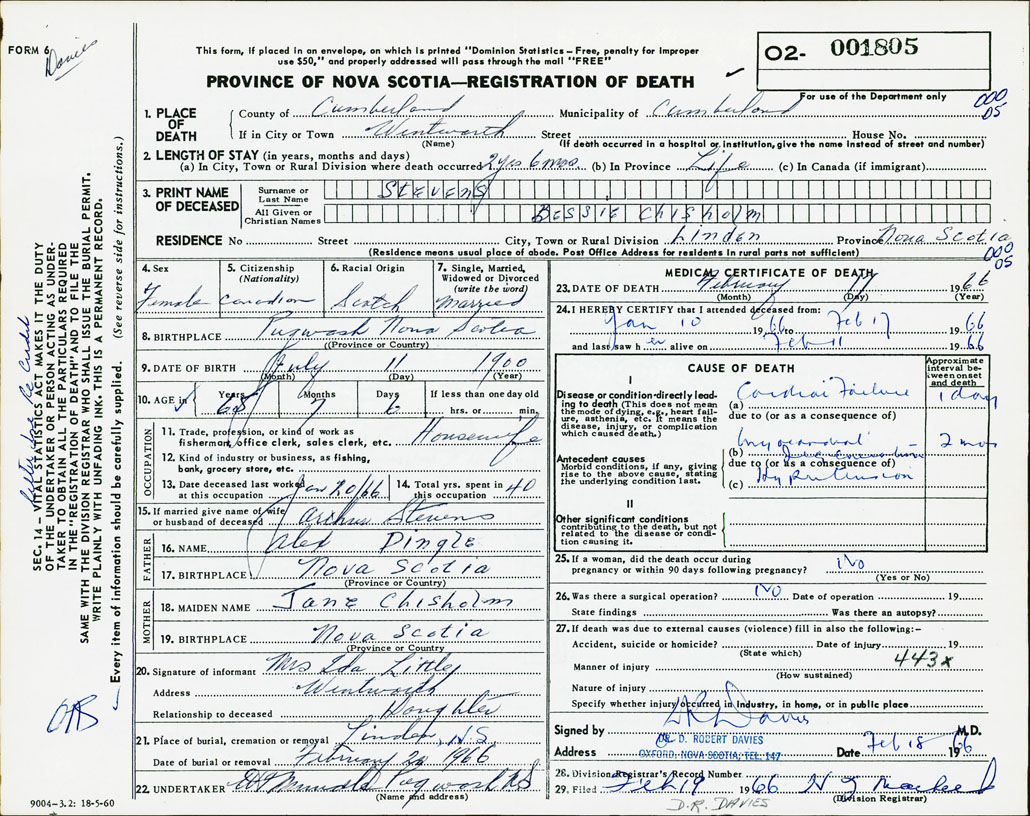 FORM 6
Davies
This form, if placed in an envelope, on which is printed "Dominion Statistics—Free, penalty for improper
use $50," and properly addressed will pass through the mail "FREE"
PROVINCE OF NOVA SCOTIA—REGISTRATION OF DEATH
O2- 001805
For use of the Department only
000
05
1. PLACE OF DEATH
County of Cumberland Municipality of Cumberland
If in City or Town Wentworth Street House No.
(Name) (If death occurred in a hospital or institution, give the name instead of street and number)
2. LENGTH OF STAY (in years, months and days)
(a) In City, Town or Rural Division where death occurred 2 yrs 6 mos (b) In Province Life (c) In Canada (if immigrant)
3. PRINT NAME OF DECEASED
Surname or Last Name STEVENS
All Given or Christian Names BESSIE CHISHOLM
RESIDENCE No Street City, Town or Rural Division Linden Province Nova Scotia
(Residence means usual place of abode. Post Office Address for residents in rural parts not sufficient)
000
05
4. Sex Female
5. Citizenship (Nationality) Canadian
6. Racial Origin Scotch
7. Single, Married, Widowed or Divorced (write the word) Married
8. BIRTHPLACE Pugwash Nova Scotia
(Province or Country)
9. DATE OF BIRTH July 11 1900
(Month) (Day) (Year)
10. AGE in Years 65 Months 7 Days 6 If less than one day old
hrs. or min.
OCCUPATION
11. Trade, profession, or kind of work as
fisherman, office clerk, sales clerk, etc. Housewife
12. Kind of industry or business, as fishing,
bank, grocery store, etc.
13. Date deceased last worked at this occupation Jan 20/66
14. Total yrs. spent in this occupation 40
15. If married give name of wife
or husband of deceased Stevens
FATHER
16. NAME Alex Dingle
17. BIRTHPLACE Nova Scotia
(Province or Country)
MOTHER
18. MAIDEN NAME Jane Chisholm
19. BIRTHPLACE Nova Scotia
(Province or Country)
20. Signature of informant Mrs Ida Little
Address Wentworth
Relationship to deceased Daughter
21. Place of burial, cremation or removal Linden, N.S.
Date of burial or removal February 20 1966
22. UNDERTAKER Pugwash NS
(Name and address)
MEDICAL CERTIFICATE OF DEATH
23. DATE OF DEATH February 17 1966
(Month) (Day) (Year)
24. I HEREBY CERTIFY that I attended deceased from:
Jan 10 1966 to Feb 17 1966
and last saw her alive on Feb 11 1966
CAUSE OF DEATH
Approximate interval between onset and death
I
Disease or condition directly leading to death (This does not mean the mode of dying, e.g., heart failure, asthenia, etc. It means the disease, injury, or complication which caused death.)
(a) Cardiac Failure 1 day
due to (or as a consequence of)
Antecedent causes
Morbid conditions, if any, giving rise to the above cause, stating the underlying condition last.
(b) Myocardial 2 mos
due to (or as a consequence of)
(c) Hypertension
II
Other significant conditions
contributing to the death, but not related to the disease or condition causing it.
25. If a woman, did the death occur during
pregnancy or within 90 days following pregnancy? No
(Yes or No)
26. Was there a surgical operation? No Date of operation 19
State findings Was there an autopsy?
27. If death was due to external causes (violence) fill in also the following:—
Accident, suicide or homicide? Date of injury 19
(State which)
443x
Manner of injury
(How sustained)
Nature of injury
Specify whether injury occurred in Industry, in home, or in public place
Signed by D R Davies M.D.
DR. D. ROBERT DAVIES
Address OXFORD, NOVA SCOTIA, TEL. 147 Date Feb 18 1966
28. Division Registrar's Record Number
29. Filed Feb 19 1966
(Division Registrar)
D.R. DAVIES
9004-3.2: 18-5-60
SEC. 14 — VITAL STATISTICS ACT MAKES IT THE DUTY
OF THE UNDERTAKER OR PERSON ACTING AS UNDER-
TAKER TO OBTAIN ALL THE PARTICULARS REQUIRED
IN THE "REGISTRATION OF DEATH" AND TO FILE THE
SAME WITH THE DIVISION REGISTRAR WHO SHALL ISSUE THE BURIAL PERMIT.
WRITE PLAINLY WITH UNFADING INK. THIS IS A PERMANENT RECORD.
Every item of information should be carefully supplied. (See reverse side for instructions.)